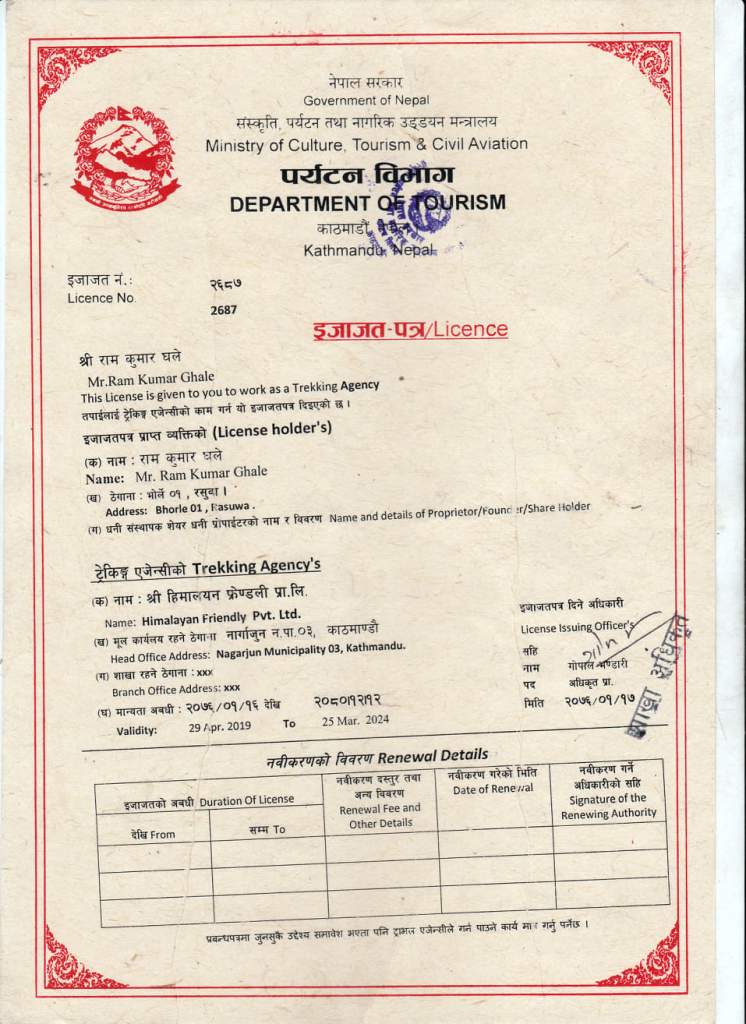 नेपाल सरकार
Government of Nepal
संस्कृति, पर्यटन तथा नागरिक उड्डयन मन्त्रालय
Ministry of Culture, Tourism & Civil Aviation
पर्यटन विभाग
DEPARTMENT OF TOURISM
काठमाडौं, नेपाल
Kathmandu, Nepal
इजाजत नं.: २६८७
Licence No. 2687
इजाजत-पत्र/Licence
श्री राम कुमार घले
Mr.Ram Kumar Ghale
This License is given to you to work as a Trekking Agency
तपाईलाई ट्रेकिङ्ग एजेन्सीको काम गर्न यो इजाजतपत्र दिइएको छ ।
इजाजतपत्र प्राप्त व्यक्तिको (License holder's)
(क) नाम : राम कुमार घले
Name: Mr. Ram Kumar Ghale
(ख) ठेगाना : भोर्ले ०१ , रसुवा ।
Address: Bhorle 01 , Rasuwa .
(ग) धनी संस्थापक शेयर धनी प्रोपाईटरको नाम र विवरण Name and details of Proprietor/Founder/Share Holder
ट्रेकिङ्ग एजेन्सीको Trekking Agency's
(क) नाम : श्री हिमालयन फ्रेण्डली प्रा.लि.
Name: Himalayan Friendly Pvt. Ltd.
(ख) मूल कार्यलय रहने ठेगाना नार्गाजुन न.पा.०३, काठमाण्डौ
Head Office Address: Nagarjun Municipality 03, Kathmandu.
(ग) शाखा रहने ठेगाना : xxx
Branch Office Address: xxx
(घ) मान्यता अबधी : २०७६/०१/१६ देखि २०८०।१२।१२
Validity: 29 Apr. 2019 To 25 Mar. 2024
इजाजतपत्र दिने अधिकारी
License Issuing Officer's
सहि
नाम गोपाल भण्डारी
पद अधिकृत प्रा.
मिति २०७६/०१/१७
शाखा अधिकृत
नवीकरणको विवरण Renewal Details
इजाजतको अबधी Duration Of License
देखि From
सम्म To
नवीकरण दस्तुर तथा
अन्य विवरण
Renewal Fee and
Other Details
नवीकरण गरेको मिति
Date of Renewal
नवीकरण गर्ने
अधिकारीको सहि
Signature of the
Renewing Authority
प्रबन्धपत्रमा जुनसुकै उद्देश्य समावेश भएता पनि ट्राभल एजेन्सीले गर्न पाउने कार्य मात्र गर्नु पर्नेछ ।